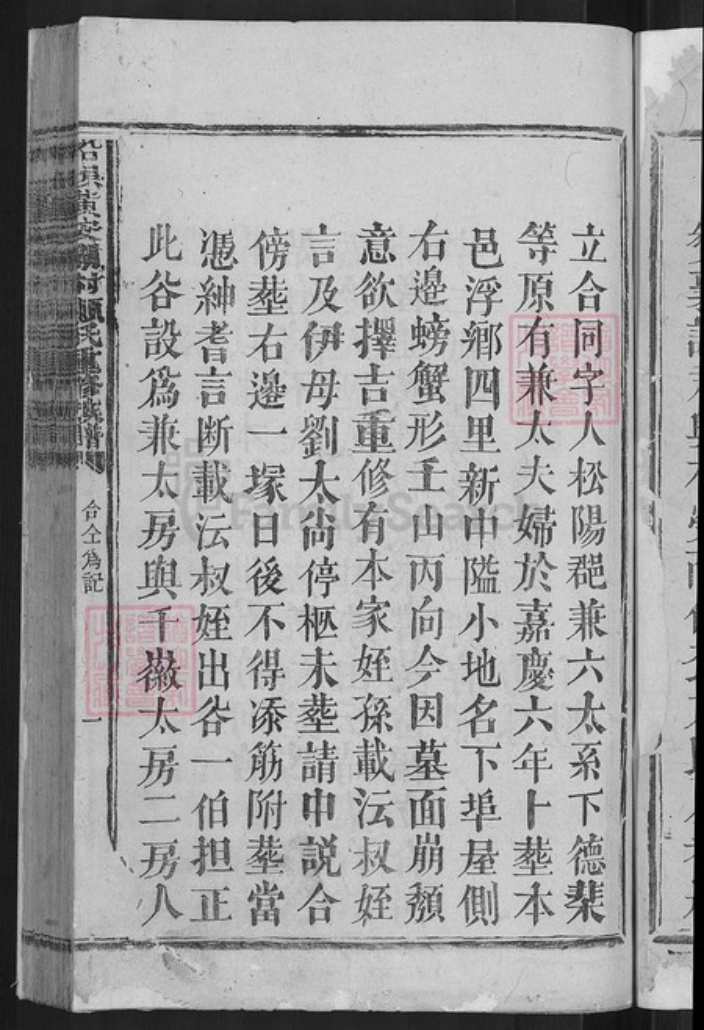 立合同字人松陽郡兼六太系下德棻
等原有兼太夫婦於嘉慶六年卜塟本
邑浮鄉四里新中隘小地名下埠屋側
右邊螃蟹形壬山丙向今因墓面崩頽
意欲擇吉重修有本家姪孫載沄叔姪
言及伊母劉太尙停柩未塟請中説合
傍塟右邊一塚日後不得添筋附塟當
憑紳耆言断載沄叔姪出谷一伯担正
此谷設爲兼太房與千徽太房二房人
村 氏重修族譜
合仝爲記
一
FamilySearch